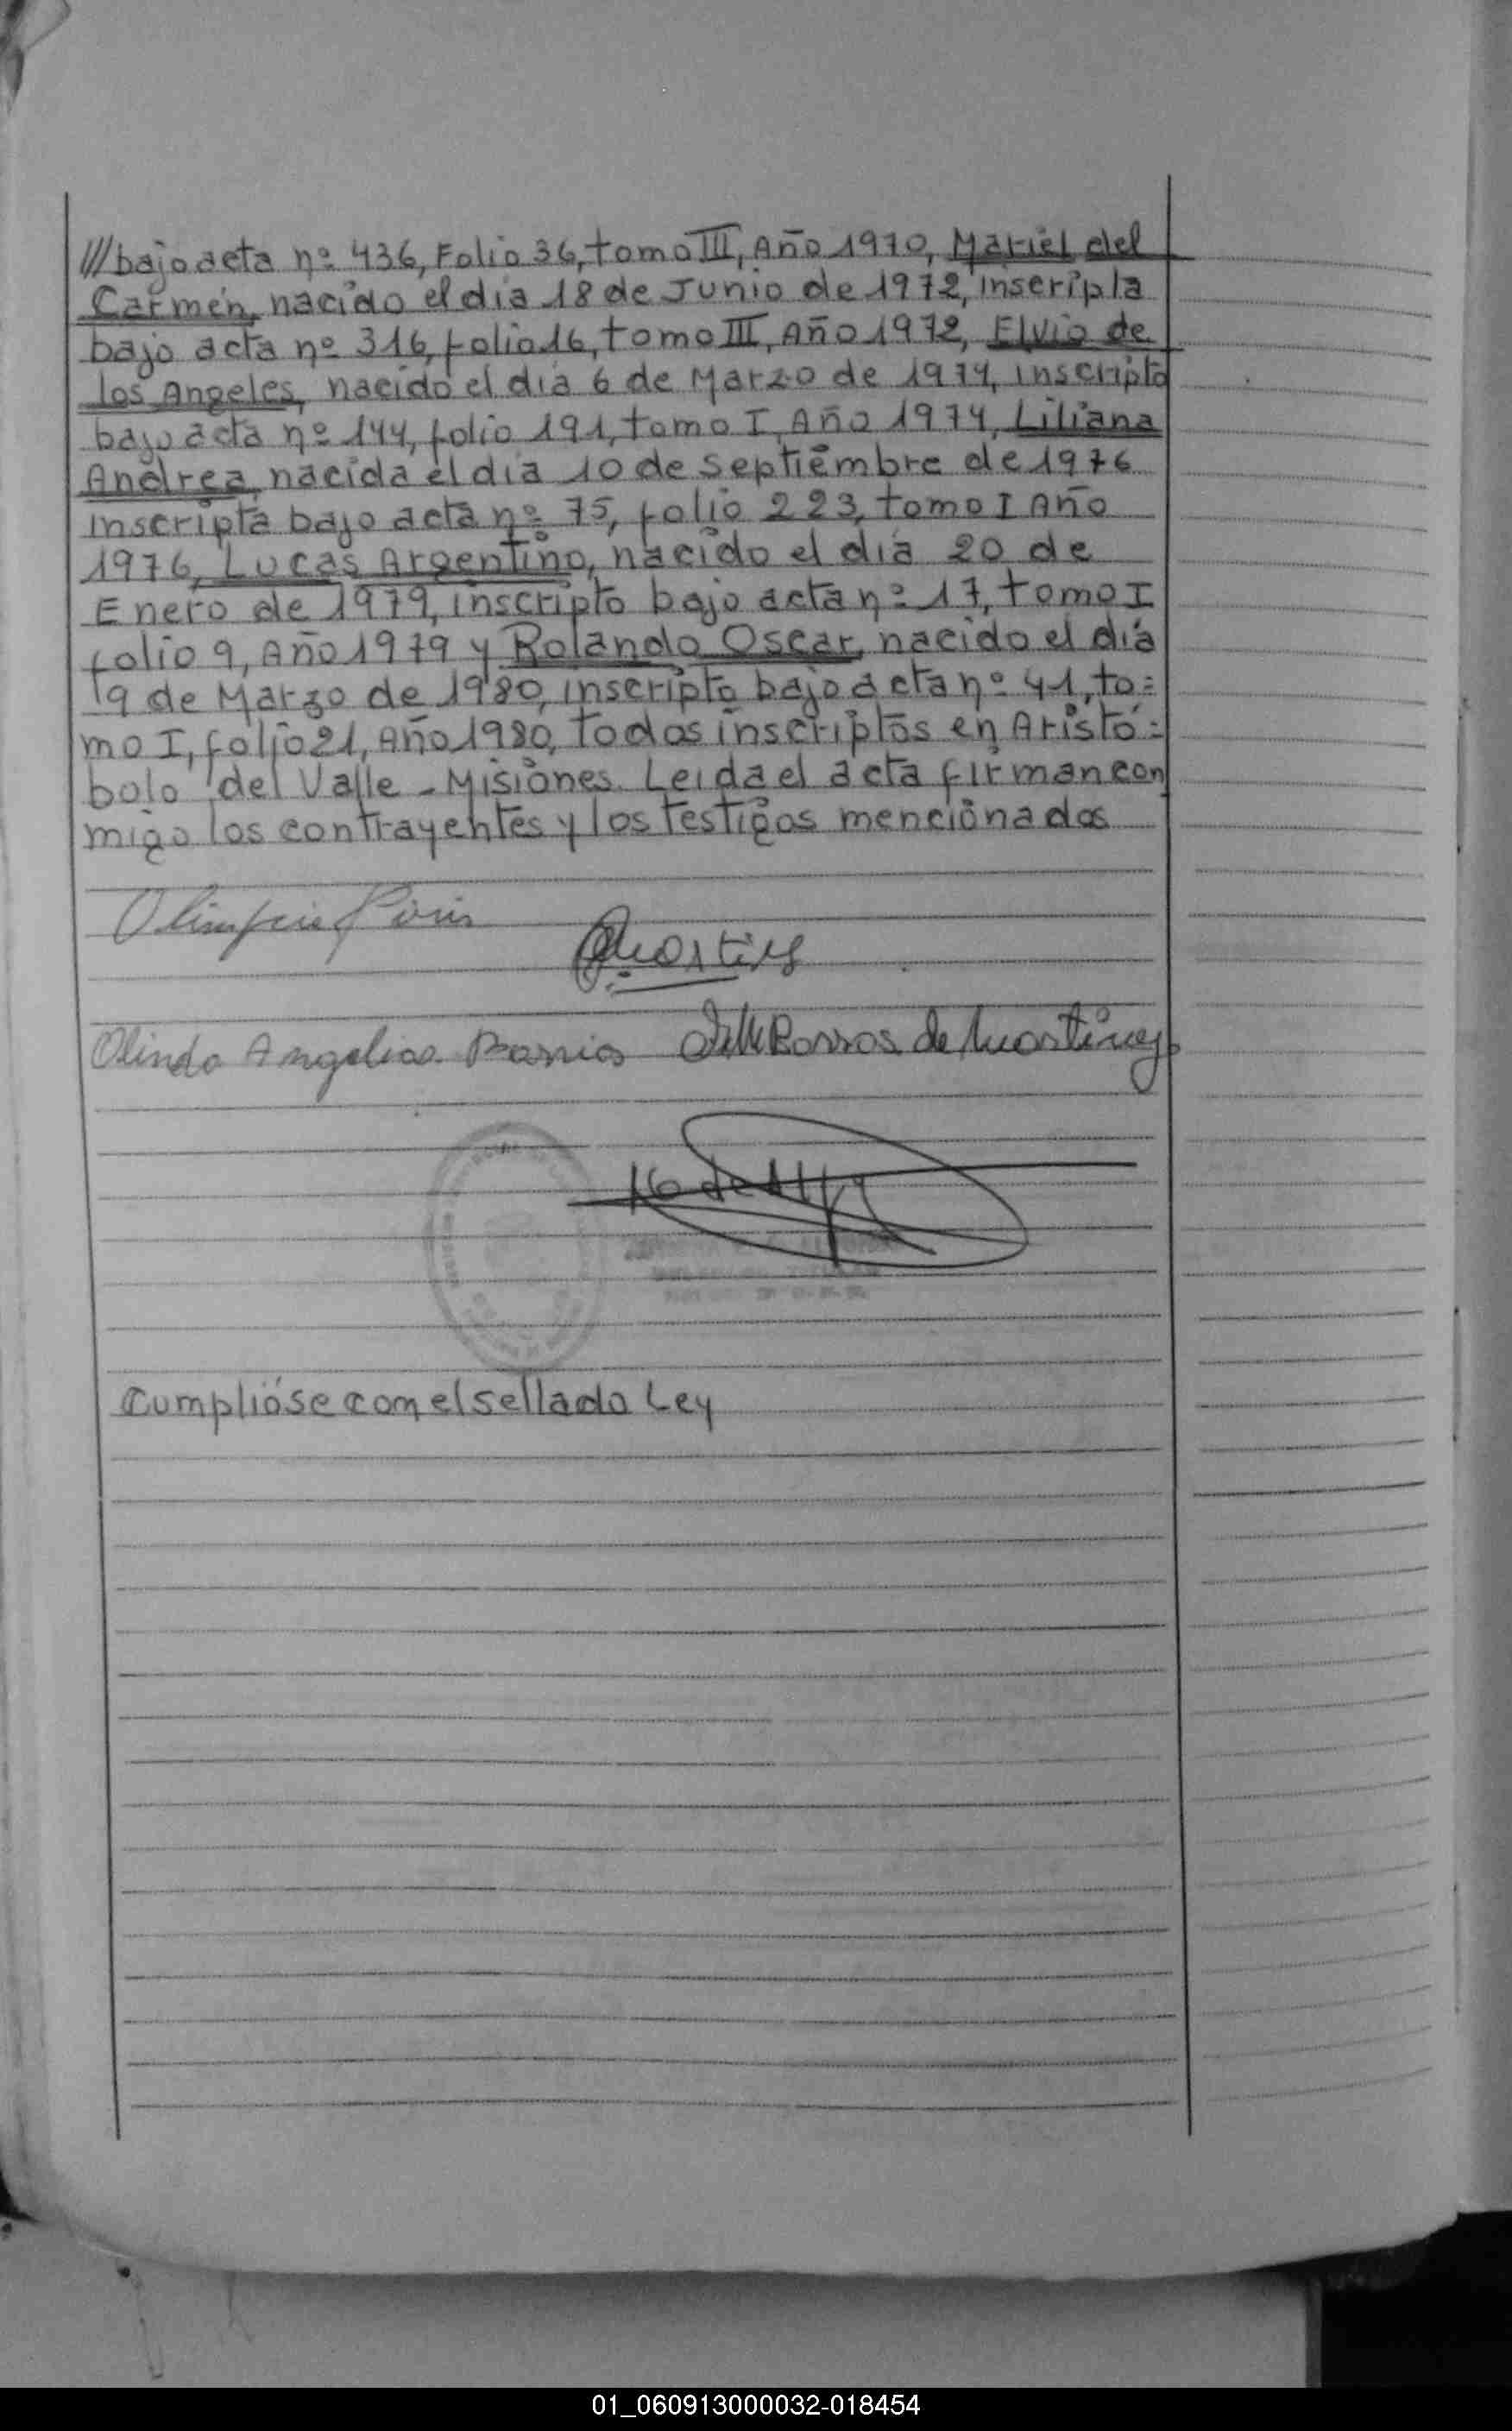 ///bajo acta nº 436, Folio 36, tomo III, Año 1970, Mariel del
Carmen, nacido el día 18 de Junio de 1972, inscripta
bajo acta nº 316, folio 16, tomo III, Año 1972, Elvio de
los Angeles, nacido el día 6 de Marzo de 1974, inscripto
bajo acta nº 144, folio 191, tomo I, Año 1974, Liliana
Andrea, nacida el día 10 de septiembre de 1976
inscripta bajo acta nº 75, folio 223, tomo I Año
1976, Lucas Argentino, nacido el día 20 de
Enero de 1979, inscripto bajo acta nº 17, tomo I
folio 9, Año 1979 y Rolando Oscar, nacido el día
19 de Marzo de 1980, inscripto bajo acta nº 41, to=
mo I, folio 21, Año 1980, todos inscriptos en Aristó=
bolo del Valle - Misiones. Leida el acta firman con
migo los contrayentes y los testigos mencionados
Olimpio
Olinda Angelica Barrios
de Martinez
Cumplióse con el sellado Ley
01_060913000032-018454